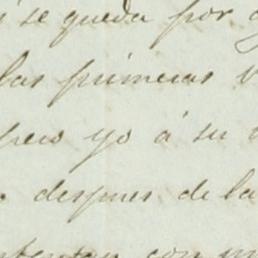 se queda por
las primeras
pero yo á su
despues de la
con